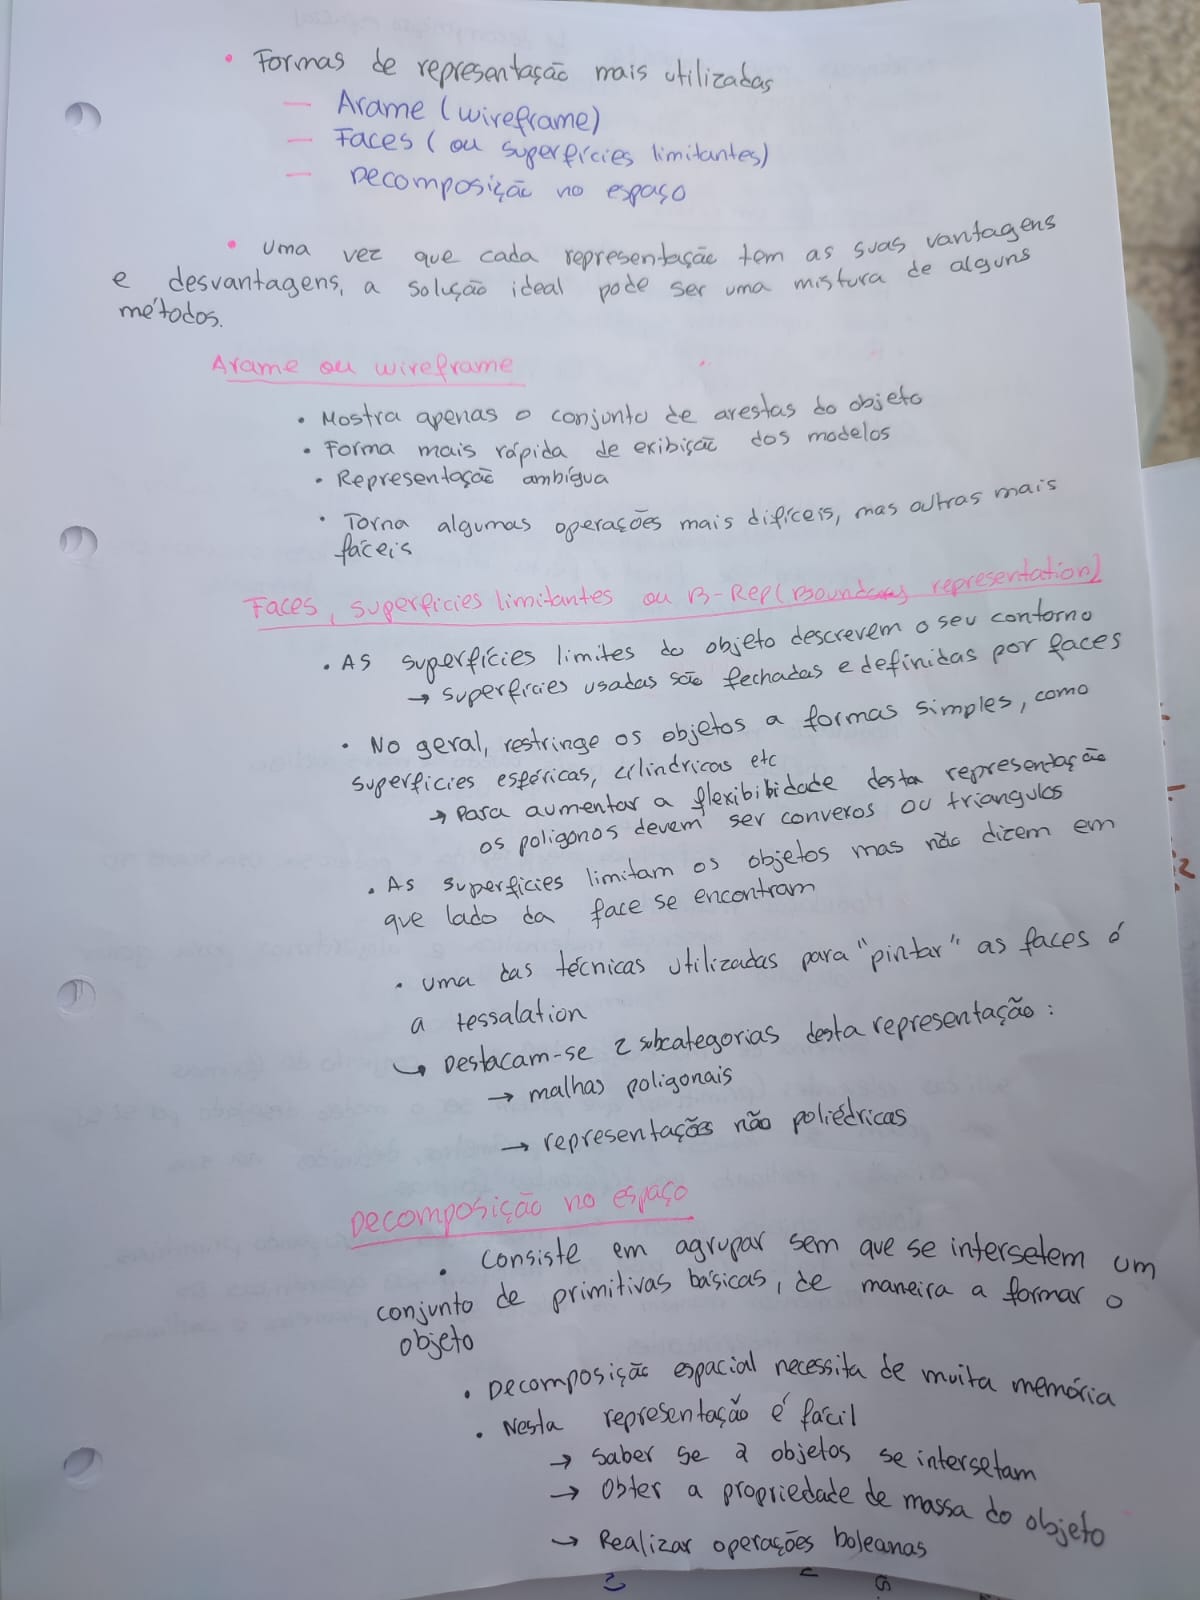 • Formas de representação mais utilizadas
— Arame (wireframe)
— Faces (ou superfícies limitantes)
— Decomposição no espaço
• Uma vez que cada representação tem as suas vantagens
e desvantagens, a solução ideal pode ser uma mistura de alguns
métodos.
Arame ou wireframe
• Mostra apenas o conjunto de arestas do objeto
• Forma mais rápida de exibição dos modelos
• Representação ambígua
• Torna algumas operações mais difíceis, mas outras mais
fáceis
Faces, superficies limitantes ou B-Rep (Boundary representation)
• As superfícies limites do objeto descrevem o seu contorno
→ superfícies usadas são fechadas e definidas por faces
• No geral, restringe os objetos a formas simples, como
superficies esféricas, cilindricas etc
→ Para aumentar a flexibibidade desta representação
os poligonos devem ser convexos ou triangulos
• As superficies limitam os objetos mas não dizem em
que lado da face se encontram
• uma das técnicas utilizadas para "pintar" as faces é
a tessalation
↳ Destacam-se 2 subcategorias desta representação:
→ malhas poligonais
→ representações não poliédricas
Decomposição no espaço
• Consiste em agrupar sem que se intersetem um
conjunto de primitivas básicas, de maneira a formar o
objeto
• Decomposição espacial necessita de muita memória
• Nesta representação é fácil
→ Saber se 2 objetos se intersetam
→ Obter a propriedade de massa do objeto
→ Realizar operações boleanas